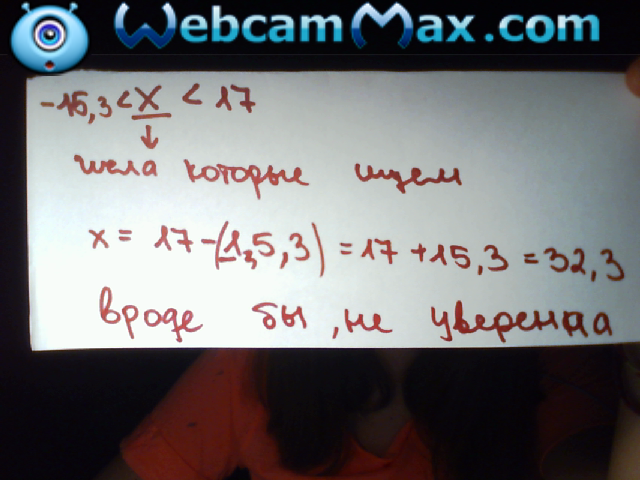 WebcamMax.com
-15,3 < x < 17
↓
числа которые ищем
x = 17-(15,3) = 17 + 15,3 = 32,3
вроде бы, не уверенна